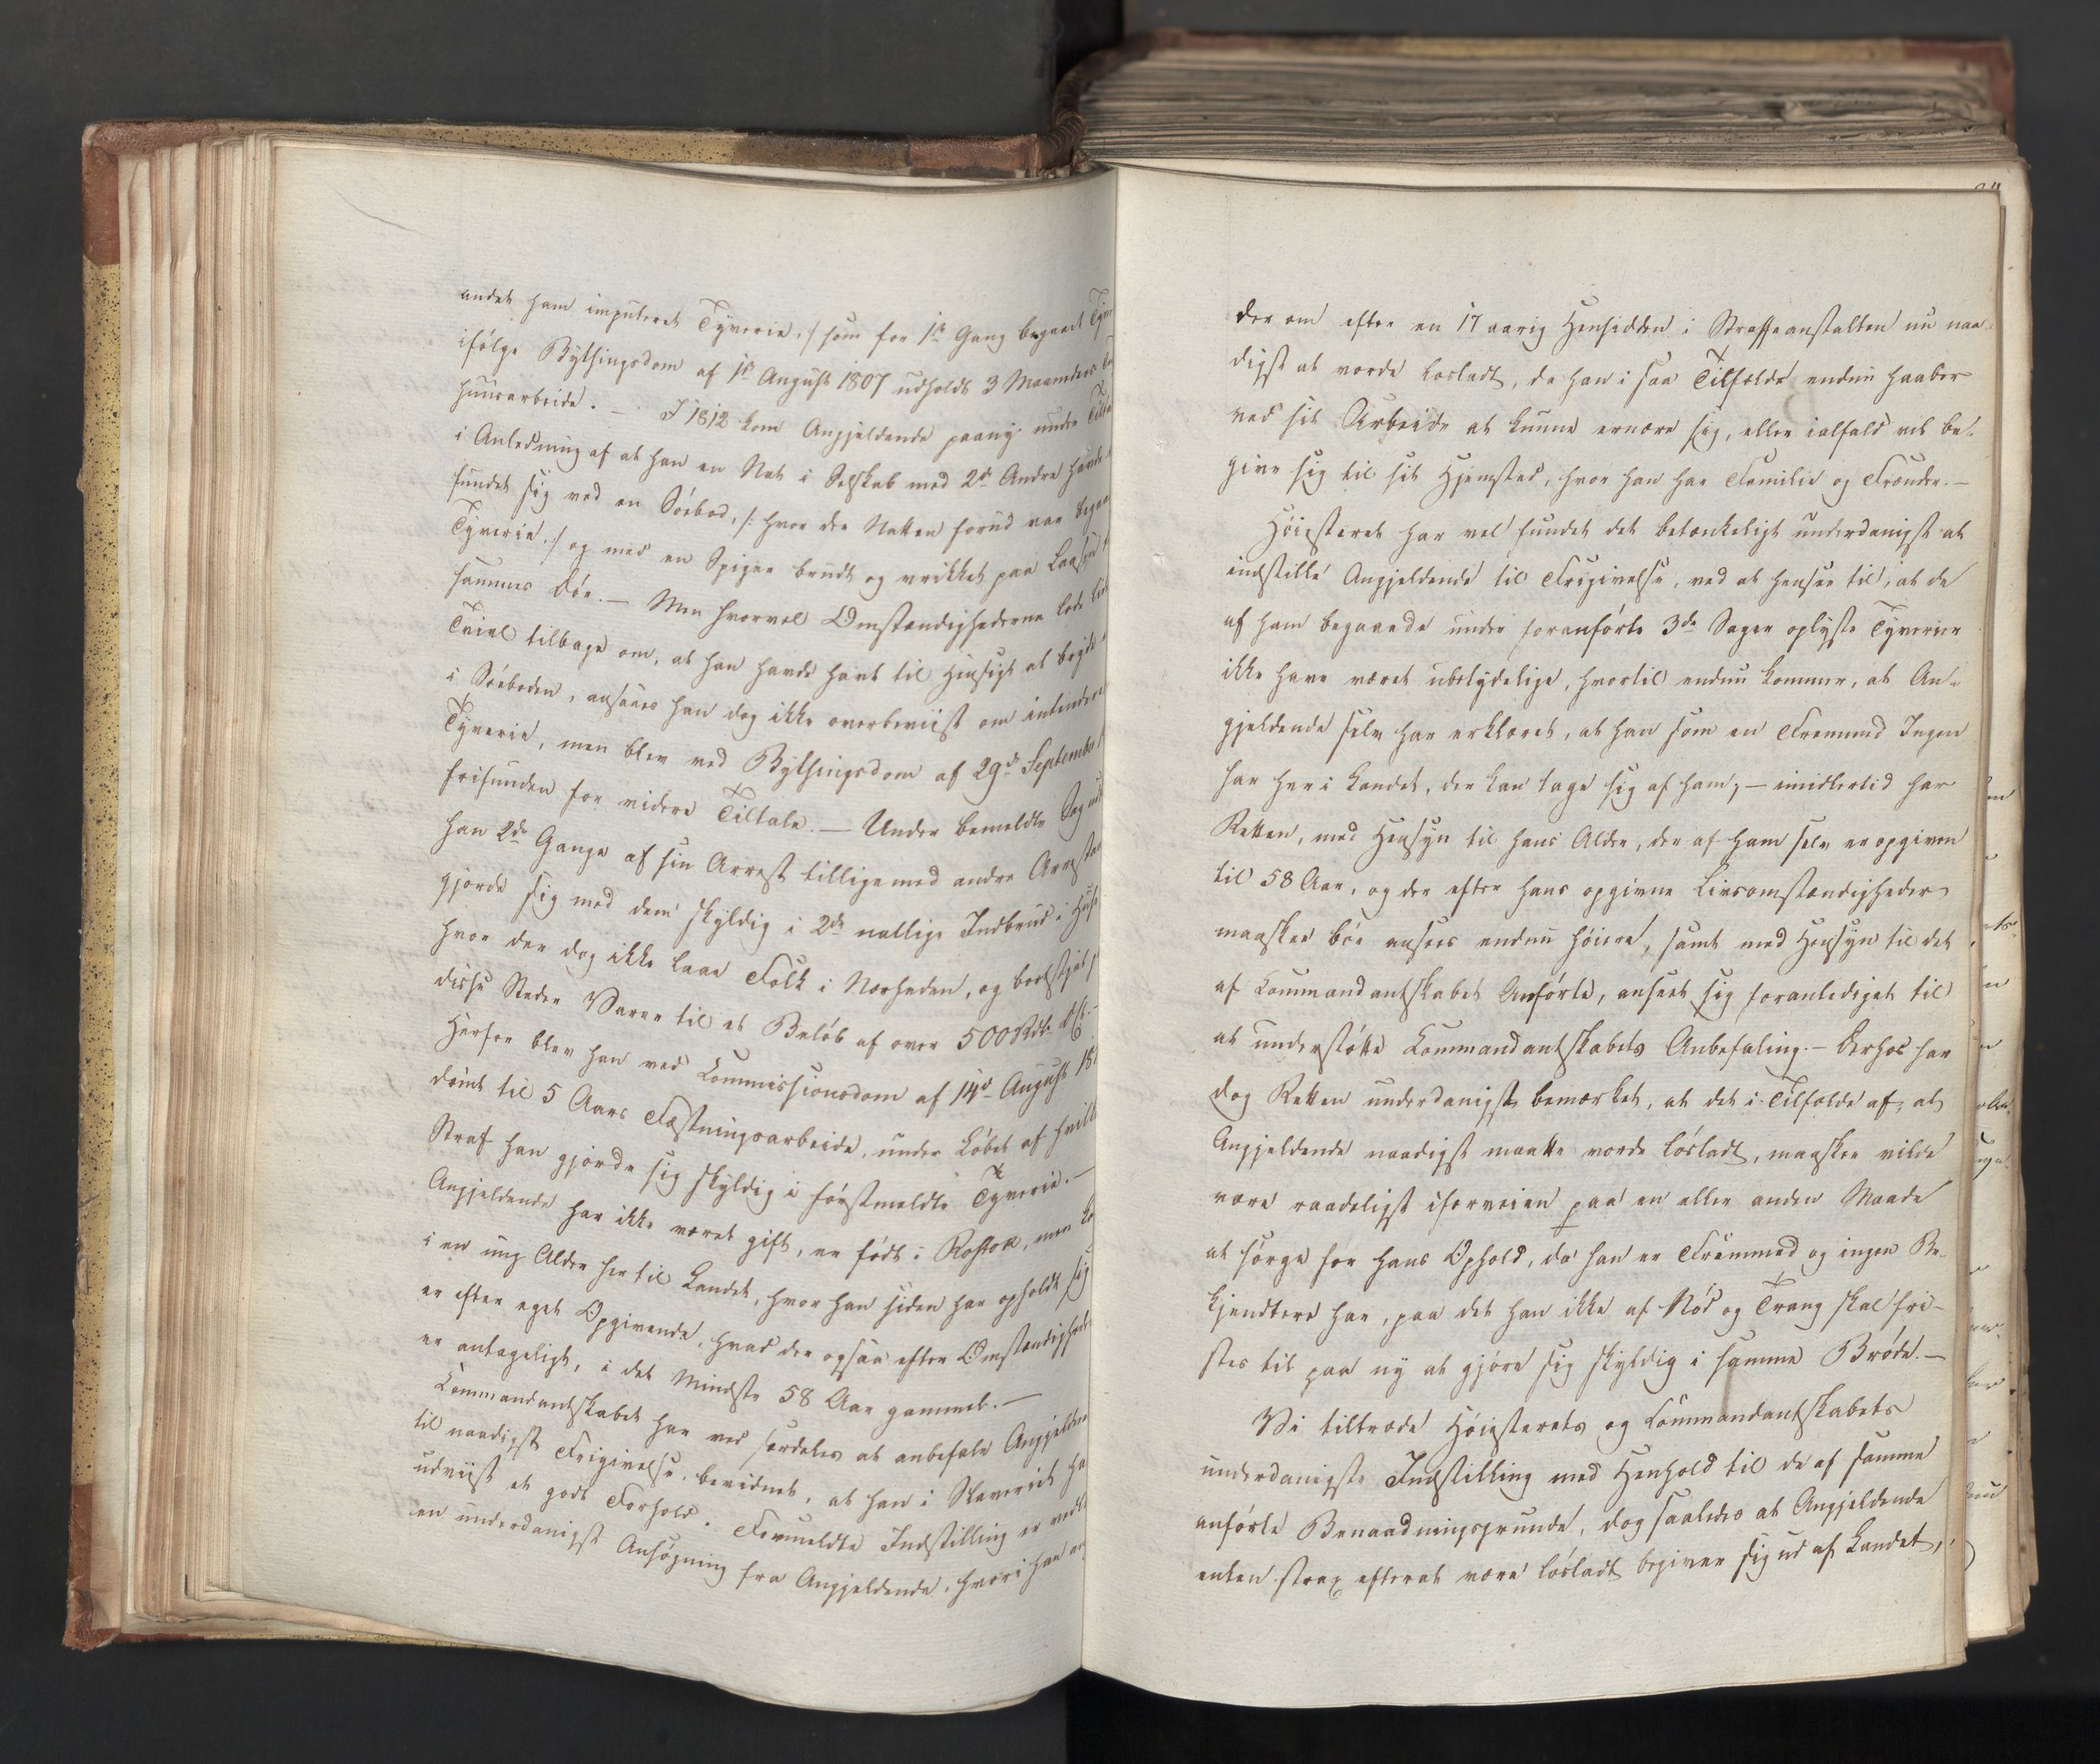 andet ham imputeret Tyverie, /: som for 1ste Gang begaaet
ifølge Bythingsdom af 1ste August 1807 udholdt 3 Maaneders
huusarbeide. — I 1812 kom Angjeldende paany under
i Anledning af at han en Nat i Selskab med 2de Andre havde
fundet sig ved en Söebod, /: hvor der Natten forud var
Tyverie :/ og med en Spiger brudt og vrikket paa Laasen
sammes Dör. — Men hvorvel Omstændighederne lode
Tvivl tilbage om, at han havde havt til Hensigt at
i Söeboden, ansaaes han dog ikke overbeviist om
Tyverie, men blev ved Bythingsdom af 29de September
frifunden for videre Tiltale. — Under bemeldte Sag
han 2de Gange af sin Arrest tilligemed andre
gjorde sig med dem skyldig i 2de natlige Indbrud i
hvor der dog ikke laae Folk i Nærheden, og bortstjal
disse Steder Varer til et Beløb af over 500 Rdlr.
Herfor blev han ved Commissionsdom af 14de August
dömt til 5 Aars Fæstningsarbeide, under Löbet af
Straf han gjorde sig skyldig i förstmeldte Tyverie. —
Angjeldende har ikke været gift, er födt i Rostok, men
i en ung Alder her til Landet, hvor han siden har opholdt sig
er efter eget Opgivende, hvad der ogsaa efter
er antageligt, i det Mindste 58 Aar gammel. —
Commandantskabet har ved særdeles at anbefale
til naadigst Frigivelse, bevidnet, at han i Slaveriet
udviist et godt Forhold. Formeldte Indstilling er
en underdanigst Ansögning fra Angjeldende, hvori han
der om efter en 17 aarig Hensidden i Straffeanstalten nu naa-
digst at vorde losladt, da han i saa Tilfælde endnu haaber
ved sit Arbeide at kunne ernære sig, eller ialfald vil be-
give sig til sit Hjemsted, hvor han har Familie og Frænder. —
Höiesteret har vel fundet det betænkeligt underdanigst at
indstille Angjeldende til Frigivelse, ved at hensee til, at de
af ham begaaede under foranförte 3de Sager oplyste Tyverier
ikke have været ubetydelige, hvortil endnu kommer, at An-
gjeldende selv har erklæret, at han som en Fremmed Ingen
har her i Landet, der kan tage sig af ham; — imidlertid har
Retten, med Hensyn til hans Alder, der af ham selv er opgiven
til 58 Aar, og der efter hans opgivne Livsomstændigheder
maaskee bör ansees endnu höiere, samt med Hensyn til det
af Commandantskabet Anförte, anseet sig foranlediget til
at understötte Commandantskabets Anbefaling. — Derhos har
dog Retten underdanigst bemærket, at det i Tilfælde af, at
Angjeldende naadigst maatte vorde lösladt, maaskee vilde
være raadeligst iforveien paa en eller anden Maade
at sörge for hans Ophold, da han er Fremmed og ingen Be-
kjendtere har, paa det han ikke af Nöd og Trang skal fri-
stes til paa ny at gjöre sig skyldig i samme Bröde. —
Vi tiltræde Höiesterets og Commandantskabets
underdanigste Indstilling med Henhold til de af samme
anförte Benaadningsgrunde, dog saaledes at Angjeldende
enten strax efterat være lösladt begiver sig ud af Landet,